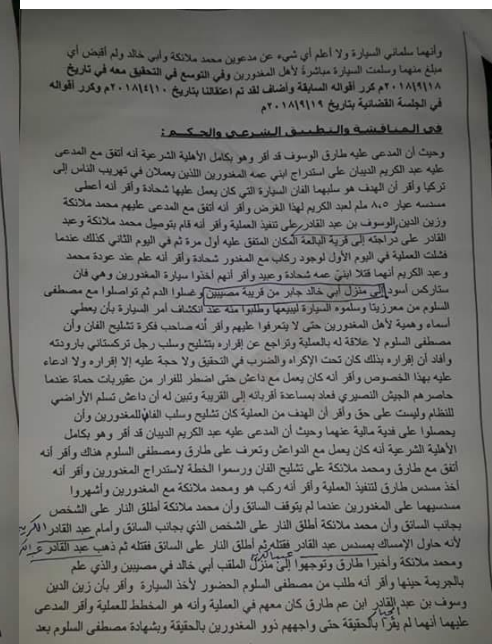 وأنهما سلماني السيارة ولا أعلم أي شيء عن مدعوين محمد ملانكة وأبي خالد ولم أقبض أي
مبلغ منهما وسلمت السيارة مباشرةً لأهل المغدورين وفي التوسع في التحقيق معه في تاريخ
٢٠١٨/٩/١٨م كرر أقواله السابقة وأضاف لقد تم اعتقالنا بتاريخ ٢٠١٨/٤/١٠م وكرر أقواله
في الجلسة القضائية بتاريخ ٢٠١٨/٩/١٩م
في المناقشة والتطبيق الشرعي والحكم:
وحيث أن المدعى عليه طارق الوسوف قد أقر وهو بكامل الأهلية الشرعية أنه أتفق مع المدعى
عليه عبد الكريم الديبان على استدراج ابني عمه المغدورين اللذين يعملان في تهريب الناس إلى
تركيا وأقر أن الهدف هو سلبهما الفان السيارة التي كان يعمل عليها شحادة وأقر أنه أعطى
مسدسه عيار ٨،٥ ملم لعبد الكريم لهذا الغرض وأقر أنه أتفق مع المدعى عليهم محمد ملانكة
وزين الدين الوسوف بن عبد القادر على تنفيذ العملية وأقر أنه قام بتوصيل محمد ملانكة وعبد
القادر على دراجته إلى قرية البالعة المكان المتفق عليه أول مرة ثم في اليوم الثاني كذلك عندما
فشلت العملية في اليوم الأول لوجود ركاب مع المغدور شحادة وأقر أنه علم عند عودة محمد
وعبد الكريم أنهما قتلا ابني عمه شحادة وعبيد وأقر أنهم أخذوا سيارة المغدورين وهي فان
ستاركس أسود إلى منزل أبي خالد جابر من قريبة مصيبين وغسلوا الدم ثم تواصلوا مع مصطفى
السلوم من معرزيتا وسلموه السيارة ليبيعها وطلبوا منه عند انكشاف أمر السيارة بأن يعطي
أسماء وهمية لأهل المغدورين حتى لا يتعرفوا عليهم وأقر أنه صاحب فكرة تشليح الفان وأن
مصطفى السلوم لا علاقة له بالعملية وتراجع عن إقراره بتشليح وسلب رجل تركستاني بارودته
وأفاد أن إقراره بذلك كان تحت الإكراه والضرب في التحقيق ولا حجة عليه إلا إقراره ولا ادعاء
عليه بهذا الخصوص وأقر أنه كان يعمل مع داعش حتى اضطر للفرار من عقيربات حماة عندما
حاصرهم الجيش النصيري فعاد بمساعدة أقربائه إلى القريبة وتبين له أن داعش تسلم الأراضي
للنظام وليست على حق وأقر أن الهدف من العملية كان تشليح وسلب الفان للمغدورين وأن
يحصلوا على فدية مالية عنهما وحيث أن المدعى عليه عبد الكريم الديبان قد أقر وهو بكامل
الأهلية الشرعية أنه كان يعمل مع الدواعش وتعرف على طارق ومصطفى السلوم هناك وأقر أنه
أتفق مع طارق ومحمد ملانكة على تشليح الفان ورسموا الخطة لاستدراج المغدورين وأقر أنه
أخذ مسدس طارق لتنفيذ العملية وأقر أنه ركب هو ومحمد ملانكة مع المغدورين وأشهروا
مسدسيهما على المغدورين عندما لم يتوقف السائق وأن محمد ملانكة أطلق النار على الشخص
بجانب السائق وأن محمد ملانكة أطلق النار على الشخص الذي بجانب السائق وأمام عبد القادر الكريم
لأنه حاول الإمساك بمسدس عبد القادر فقتله ثم أطلق النار على السائق فقتله ثم ذهب عبد القادر
ومحمد ملانكة وأخبرا طارق وتوجهوا إلى منزل الملقب أبي خالد في مصيبين والذي علم
بالجريمة حينها وأقر أنه طلب من مصطفى السلوم الحضور لأخذ السيارة وأقر بأن زين الدين
وسوف بن عبد القادر ابن عم طارق كان معهم في العملية وأنه هو المخطط للعملية وأقر المدعى
عليهما أنهما لم يقرا بالحقيقة حتى واجههم ذوو المغدورين بالحقيقة وبشهادة مصطفى السلوم بعد